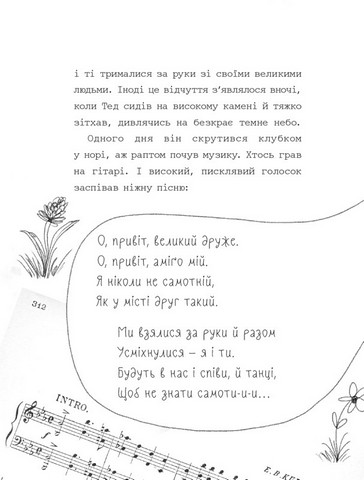 і ті трималися за руки зі своїми великими
людьми. Іноді це відчуття з'являлося вночі,
коли Тед сидів на високому камені й тяжко
зітхав, дивлячись на безкрає темне небо.
Одного дня він скрутився клубком
у норі, аж раптом почув музику. Хтось грав
на гітарі. І високий, писклявий голосок
заспівав ніжну пісню:
О, привіт, великий друже.
О, привіт, аміго мій.
Я ніколи не самотній,
Як у місті друг такий.
312
Ми взялися за руки й разом
Усміхнулися – я і ти.
Будуть в нас і співи, й танці,
Щоб не знати самоти-и-и...
INTRO.
f